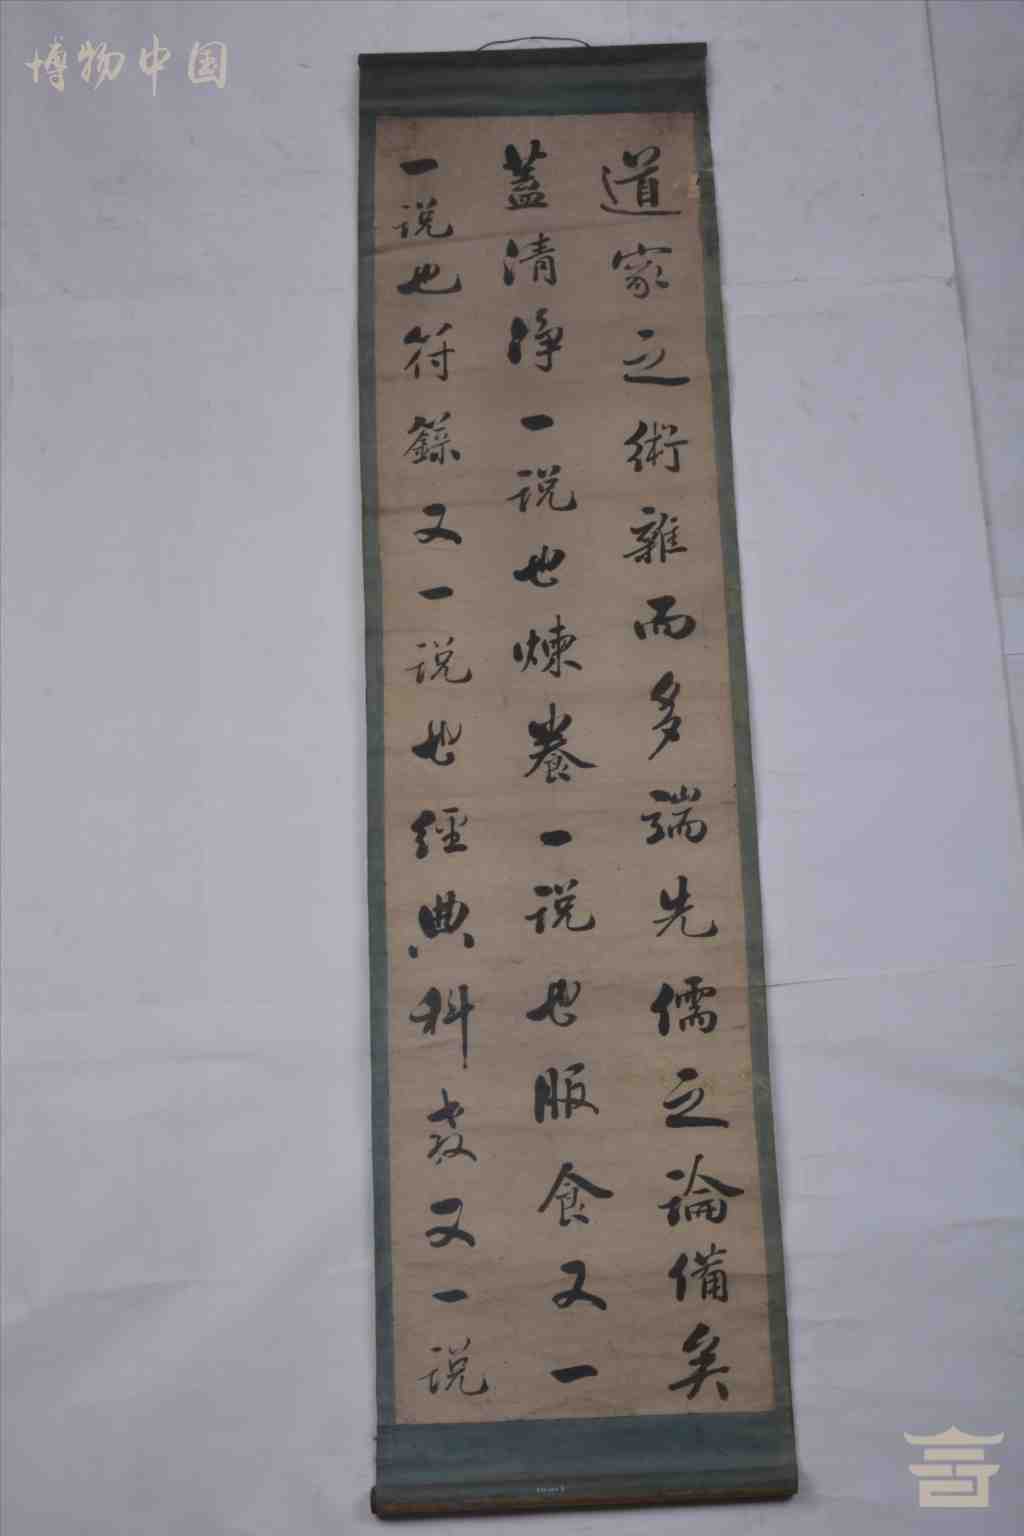 博物中国
道家之術雜而多端先儒之論備矣
蓋清淨一说也煉養一说也服食又一
一说也符籙又一说也經典科教又一说